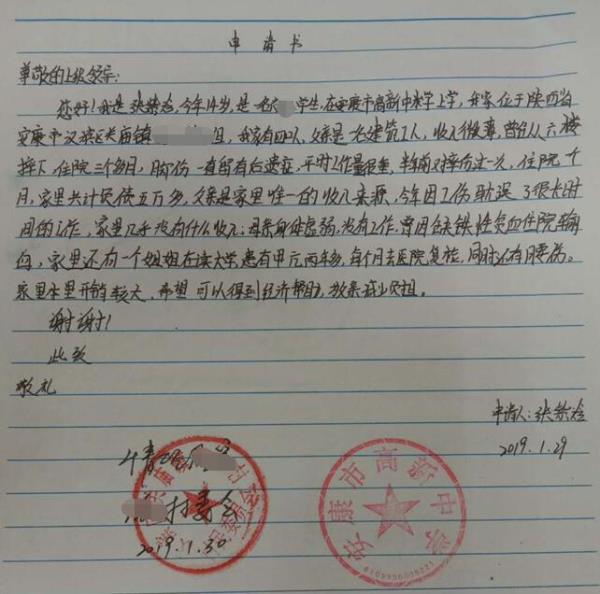 申请书
尊敬的上级领导:
您好!我是张 ，今年14岁,是一名 学生,在安康市高新中学上学,我家位于陕西省
安康市汉滨区 庙镇 组,我家有四口人,父亲是一名建筑工人,收入微薄,曾经从六楼
摔下,住院三个多月,胸伤一直留有后遗症,平时工作量很重,半年前又摔伤过一次,住院一个
月,家里共计负债五万多,父亲是家里唯一的收入来源,今年因工伤耽误了很长时
间的工作,家里几乎没有什么收入;母亲身体虚弱,没有工作,曾因缺铁性贫血住院 
 ,家里还有一个姐姐在读大学,患有甲亢两年多,每个月去医院复检,同时还有腰伤。
家里本里开销较大,希望可以得到经济帮助,放来 少负担。
谢谢!
此致
敬礼
申请人:张 
2019.1.29
情况
村委会
2019.1.30
安康市高新中学